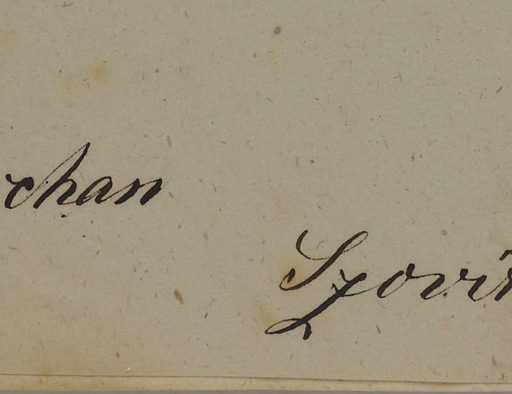 chan
Szovit